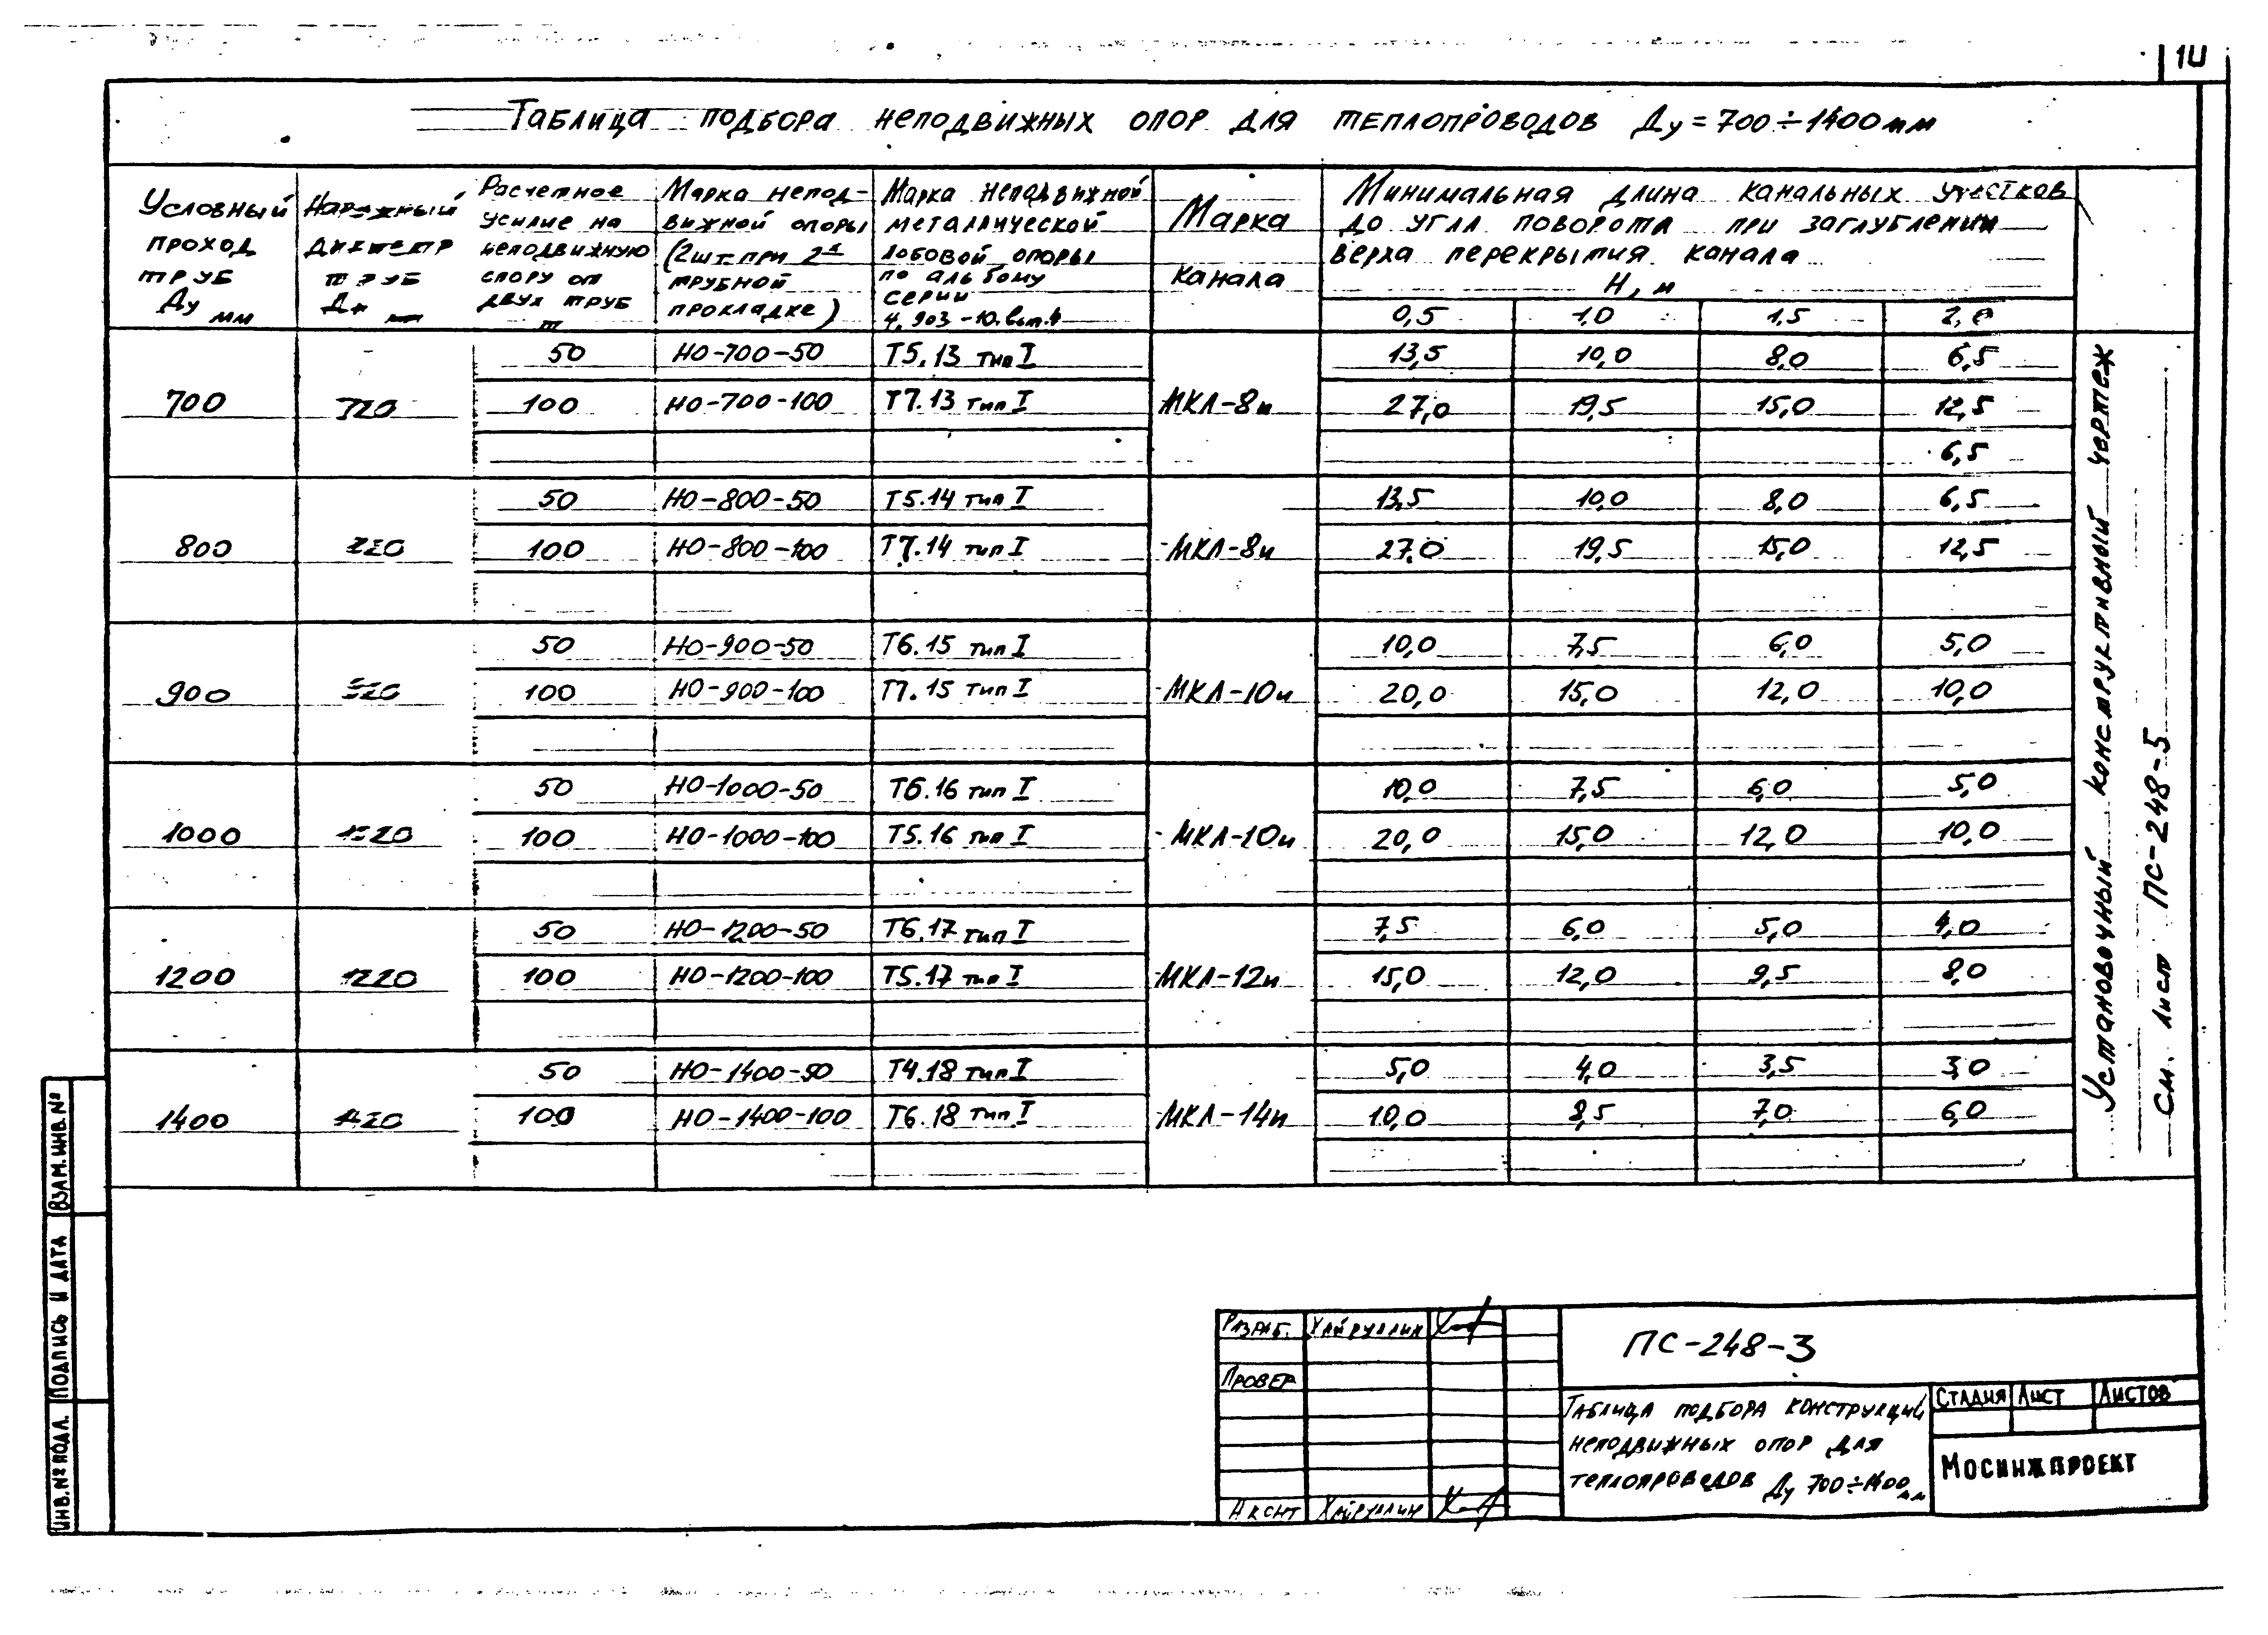 10
Таблица подбора неподвижных опор для теплопроводов Ду = 700 ÷ 1400 мм
Условный проход труб Ду мм
Наружный диаметр труб Дн мм
Расчетное усилие на неподвижную опору от двух труб т
Марка непод-вижной опоры (2шт. при 2х трубной прокладке)
Марка неподвижной металлической лобовой опоры по альбому серии 4.903-10. вып.4
Марка канала
Минимальная длина канальных участков
до угла поворота при заглублении
верха перекрытия канала
Н, м
0,5 1,0 1,5 2,0
50 НО-700-50 Т5.13 тип I 13,5 10,0 8,0 6,5
700 720 100 НО-700-100 Т7.13 тип I МКЛ-8и 27,0 19,5 15,0 12,5
6,5
50 НО-800-50 Т5.14 тип I 13,5 10,0 8,0 6,5
800 820 100 НО-800-100 Т7.14 тип I МКЛ-8и 27,0 19,5 15,0 12,5
50 НО-900-50 Т6.15 тип I 10,0 7,5 6,0 5,0
900 920 100 НО-900-100 Т7.15 тип I МКЛ-10и 20,0 15,0 12,0 10,0
50 НО-1000-50 Т6.16 тип I 10,0 7,5 6,0 5,0
1000 1020 100 НО-1000-100 Т5.16 тип I МКЛ-10и 20,0 15,0 12,0 10,0
50 НО-1200-50 Т6.17 тип I 7,5 6,0 5,0 4,0
1200 1220 100 НО-1200-100 Т5.17 тип I МКЛ-12и 15,0 12,0 9,5 8,0
50 НО-1400-50 Т4.18 тип I 5,0 4,0 3,5 3,0
1400 1420 100 НО-1400-100 Т6.18 тип I МКЛ-14и 10,0 8,5 7,0 6,0
Установочный конструктивный чертеж
См. лист ПС-248-5
Взам.инв.№
Подпись и дата
Инв.№ подл.
Разраб. Хайруллин
Провер
Н кснт Хайруллин
ПС-248-3
Таблица подбора конструкций
неподвижных опор для
теплопроводов Ду 700÷1400 мм
Стадия Лист Листов
Мосинжпроект